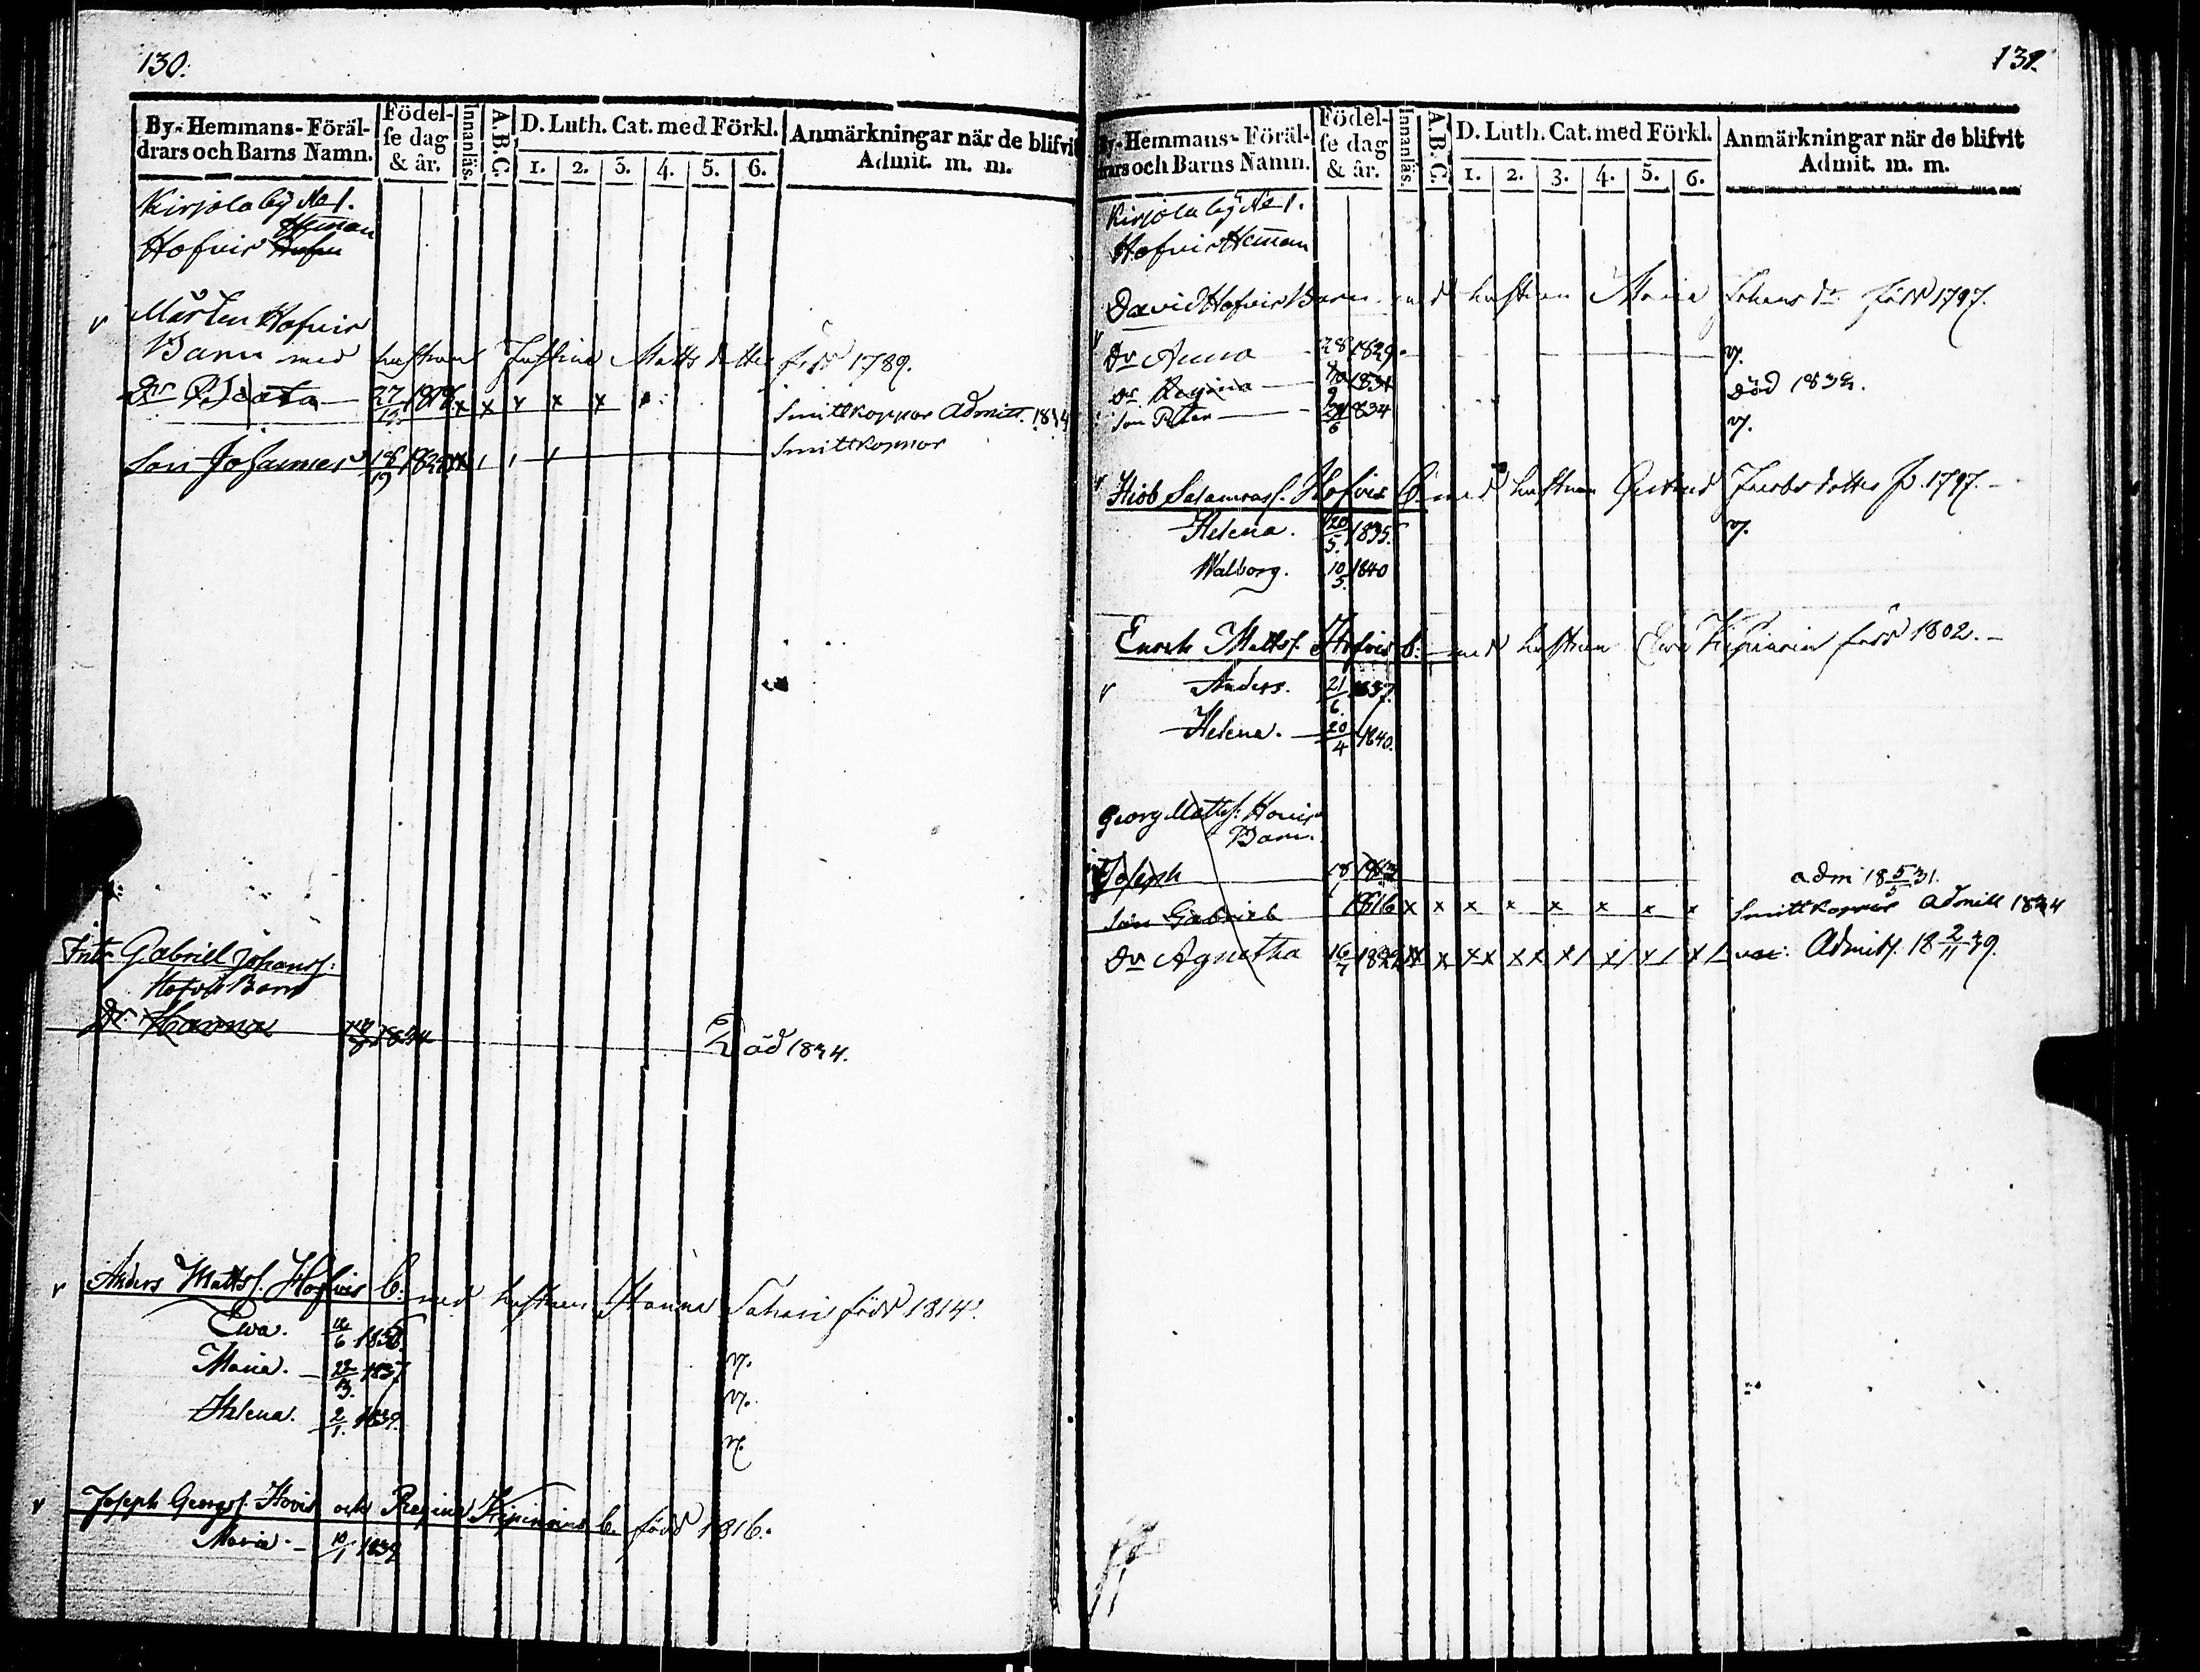 130.
By-Hemmans-Föräl-
drars och Barns Namn.
Födel-
se dag
& år.
Innanläs.
A.B.C.
D. Luth. Cat. med Förkl.
1. 2. 3. 4. 5. 6.
Anmärkningar när de blifvit
Admit. m. m.
Kirjola by No 1.
Heman
Hofvis
Mårten Hofvis
Barn med hustrun Justina Matts dotter född 1789.
Dr Beata 27 x x x x x Smittkoppor Admitt. 1834
Son Johannes 18 Smittkoppor
Gabriel Johanss:
Hofvis Barn
Dr. Hanna 1834 Död 1834.
v Anders Mattss. Hofvis b: med hustrun Hanna född 1814.
Ewa. 6 1836 v.
Maria. 1837 v.
Helena. 2/1. 1839. v.
v Joseph Georgss. Hovis och Regina b. född 1816.
Maria. 10/1 1839
131.
By-Hemmans-Föräl-
drars och Barns Namn.
Födel-
se dag
& år.
Innanläs.
A.B.C.
D. Luth. Cat. med Förkl.
1. 2. 3. 4. 5. 6.
Anmärkningar när de blifvit
Admit. m. m.
Kirjola by No 1.
Hofvis Heman
David Hofvis Barn med hustrun Maria Johans dr född 1797.
v Dr Anna 28 1829. v.
Dr Regina 1831 Död 1832.
Son Peter 1834 v.
v Hiob Salamonss. Hofvis b. med hustrun Gertrud Jacobs dotter f. 1797.
Helena. 20/5. 1835. v.
Walborg. 10/5 1840
Enoch Mattss. Hofvis b. med hustrun Ewa född 1802.
v Anders. 21/6. 1837.
Helena. 20/4 1840.
Georg Mattss: Hovis
Barn.
Joseph 18 1813 adm 18 5/5 31.
Son Gabriel 1816 x x x x x x x x Smittkoppor Admitt 1834
Dr Agnetha 16/7 1822 vac: Admitt. 18 2/11 39.